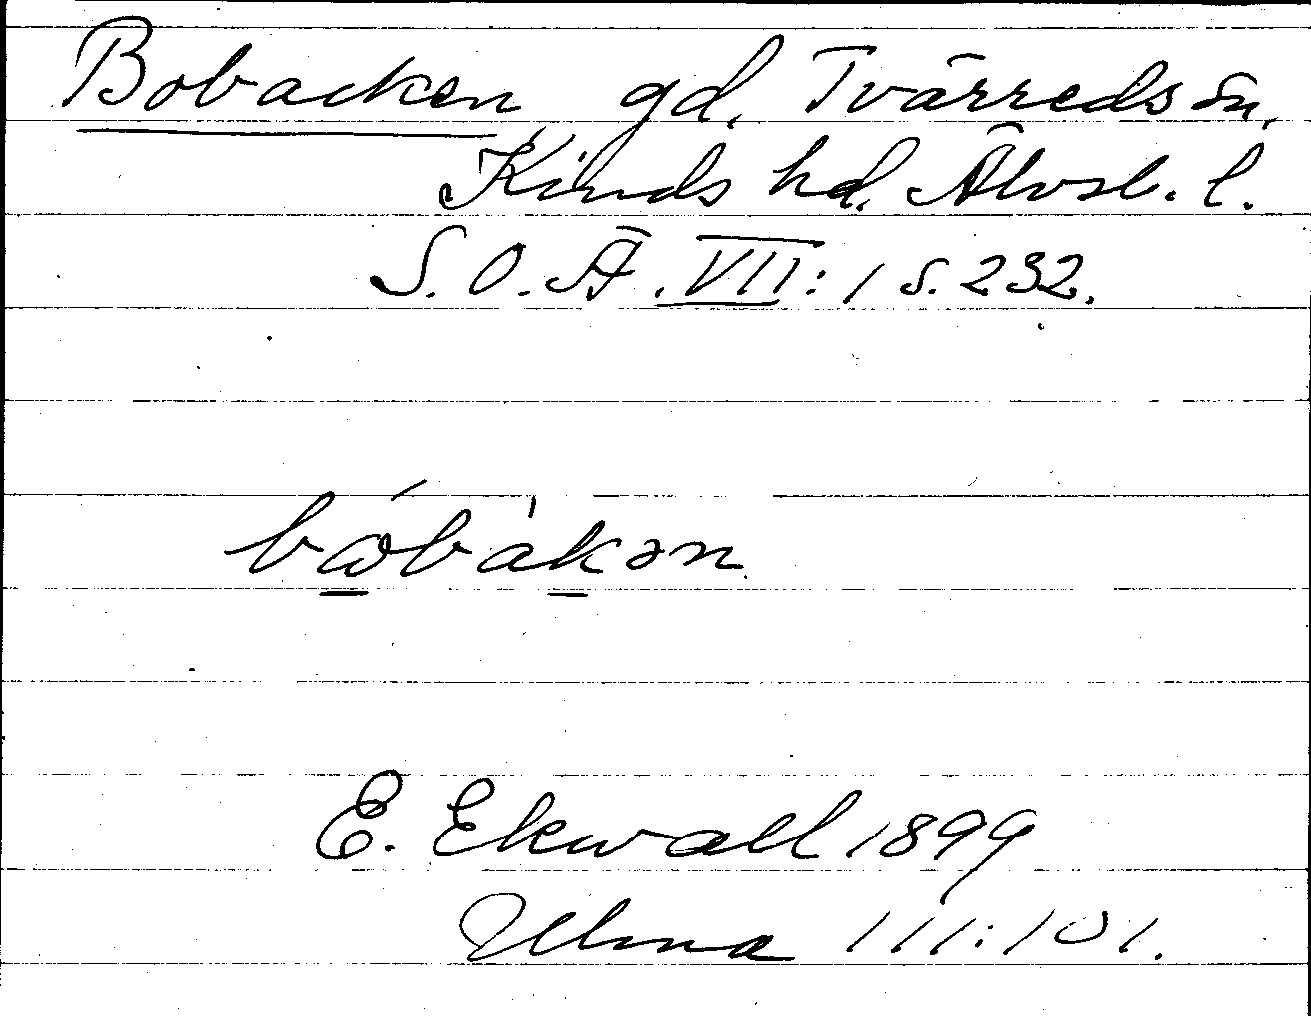 Bobacken gd. Tvärreds sn.
Kinds hd. Älvsb. l.
S.O.Ä. VII:1 s. 232.
bωbákən
E. Ekwall 1899
Ulma 111:101.